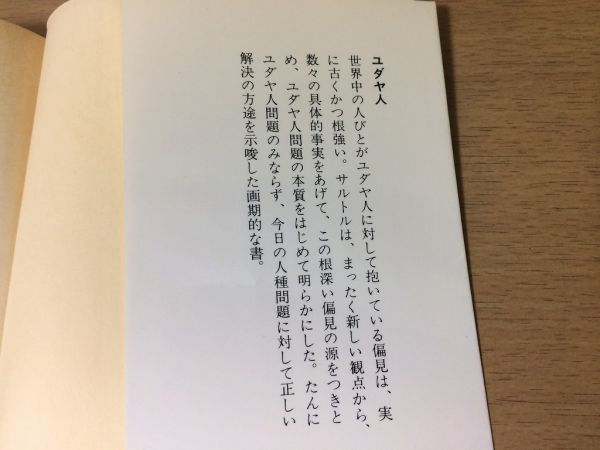 ユダヤ人
世界中の人びとがユダヤ人に対して抱いている偏見は、実
に古くかつ根強い。サルトルは、まったく新しい観点から、
数々の具体的事実をあげて、この根深い偏見の源をつきと
め、ユダヤ人問題の本質をはじめて明らかにした。たんに
ユダヤ人問題のみならず、今日の人種問題に対して正しい
解決の方途を示唆した画期的な書。